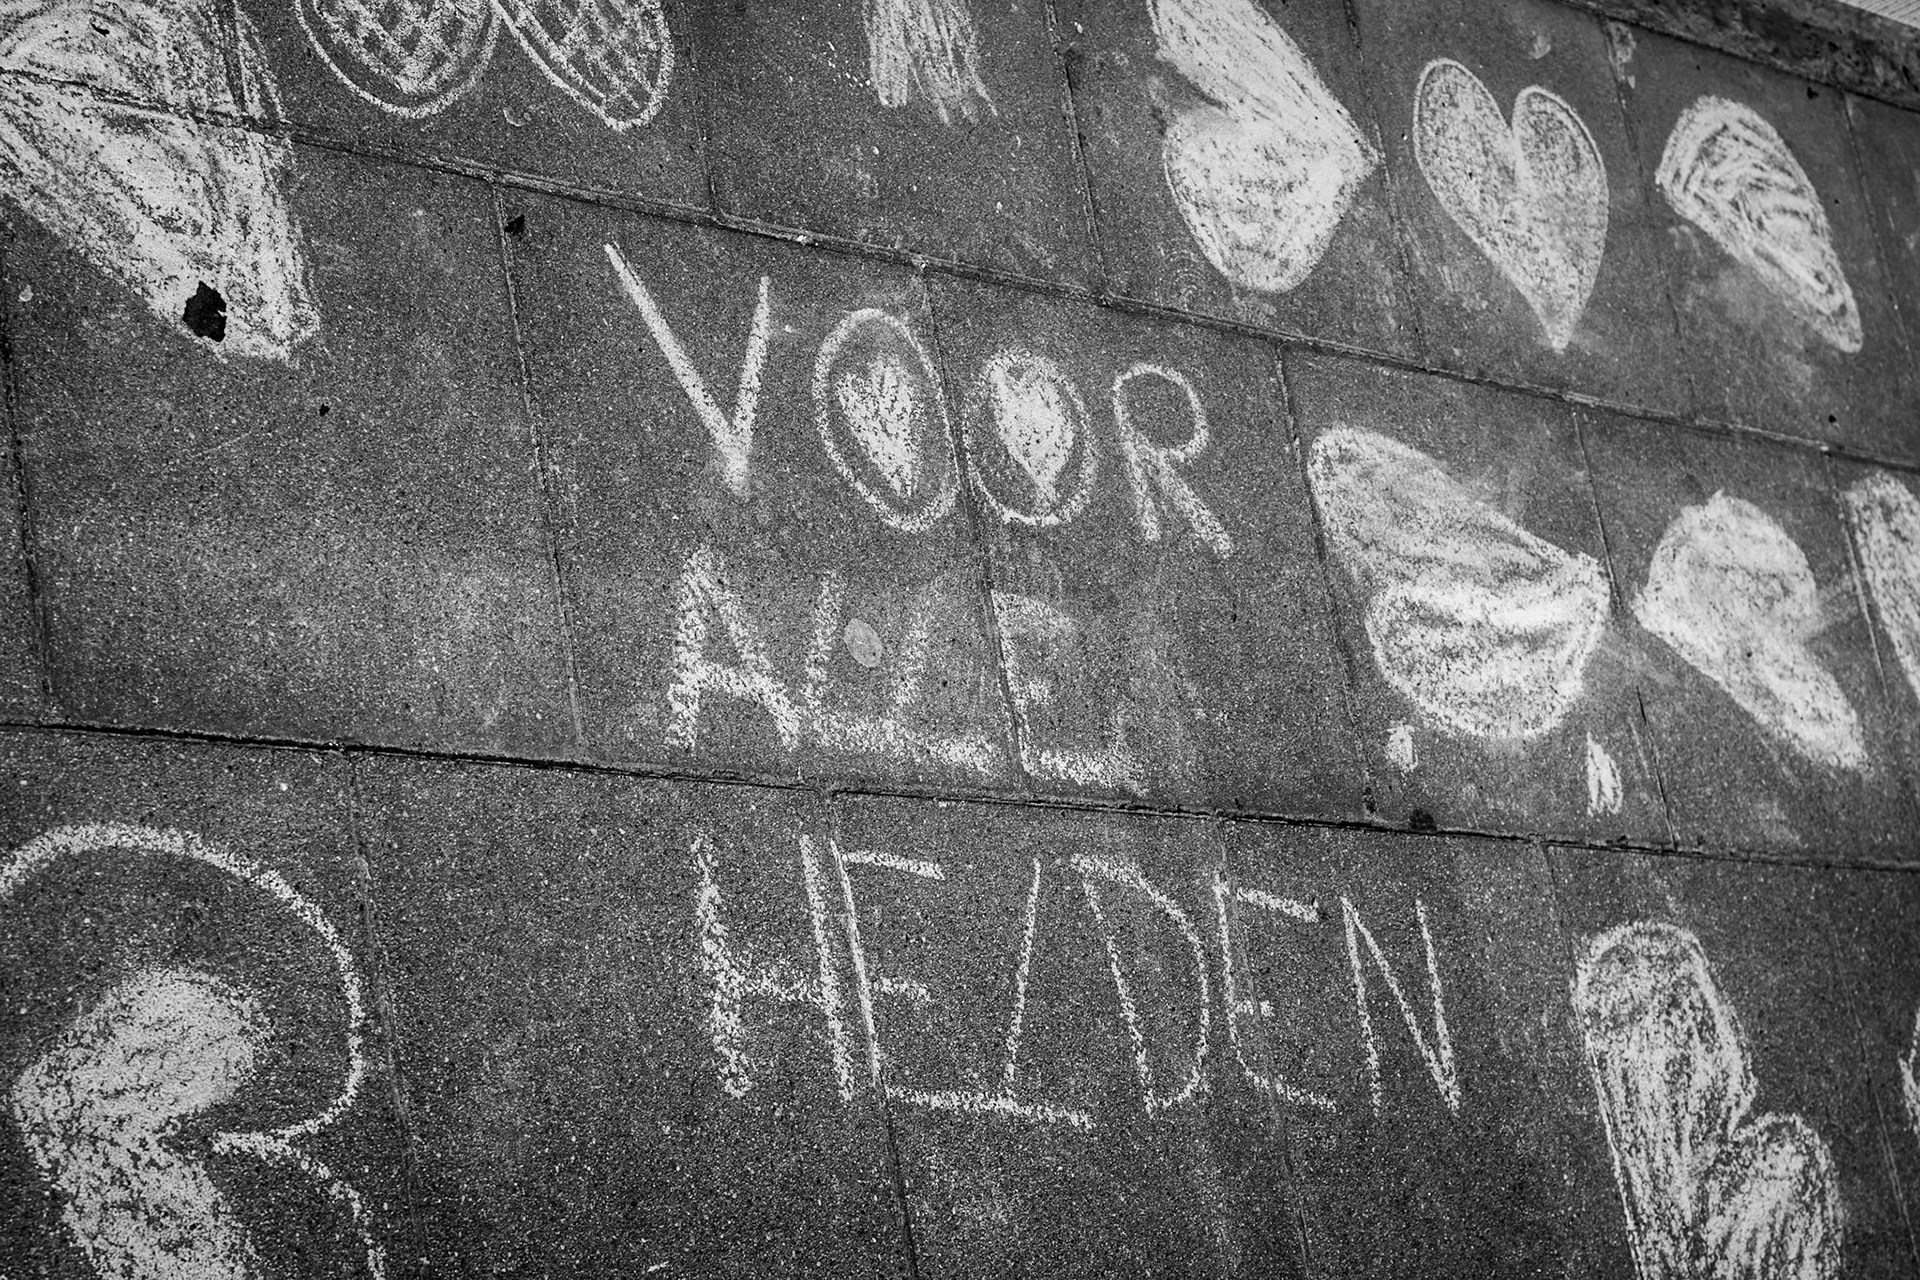 VOOR
ALLE
HELDEN